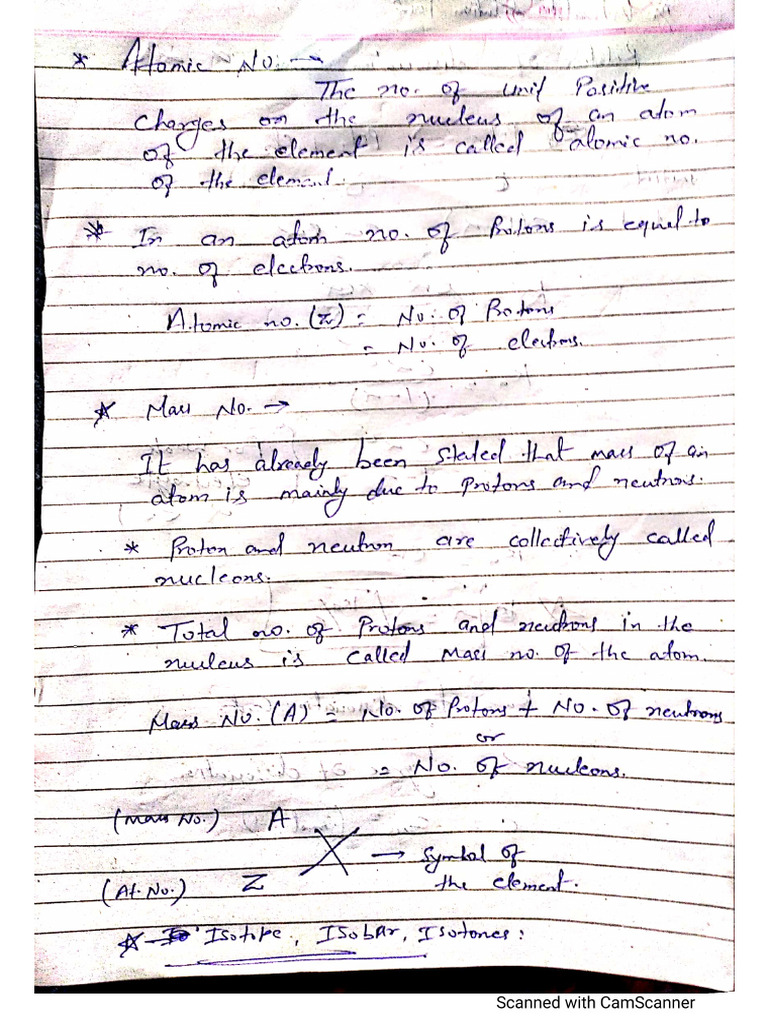 * Atomic No. →
The no. of unit Positive
charges on the nucleus of an atom
of the element is called atomic no.
of the element.
* In an atom no. of Protons is equal to
no. of electrons.
Atomic no. (Z) = No. of Protons
= No. of electrons.
* Mass No. →
It has already been stated that mass of an
atom is mainly due to protons and neutrons.
* Proton and neutron are collectively called
nucleons.
* Total no. of Protons and neutrons in the
nucleus is called Mass no. of the atom.
Mass No. (A) = No. of Protons + No. of neutrons
or
= No. of nucleons.
(Mass No.) A
X → Symbol of
(At. No.) Z the element.
* Isotope, Isobar, Isotones:
Scanned with CamScanner